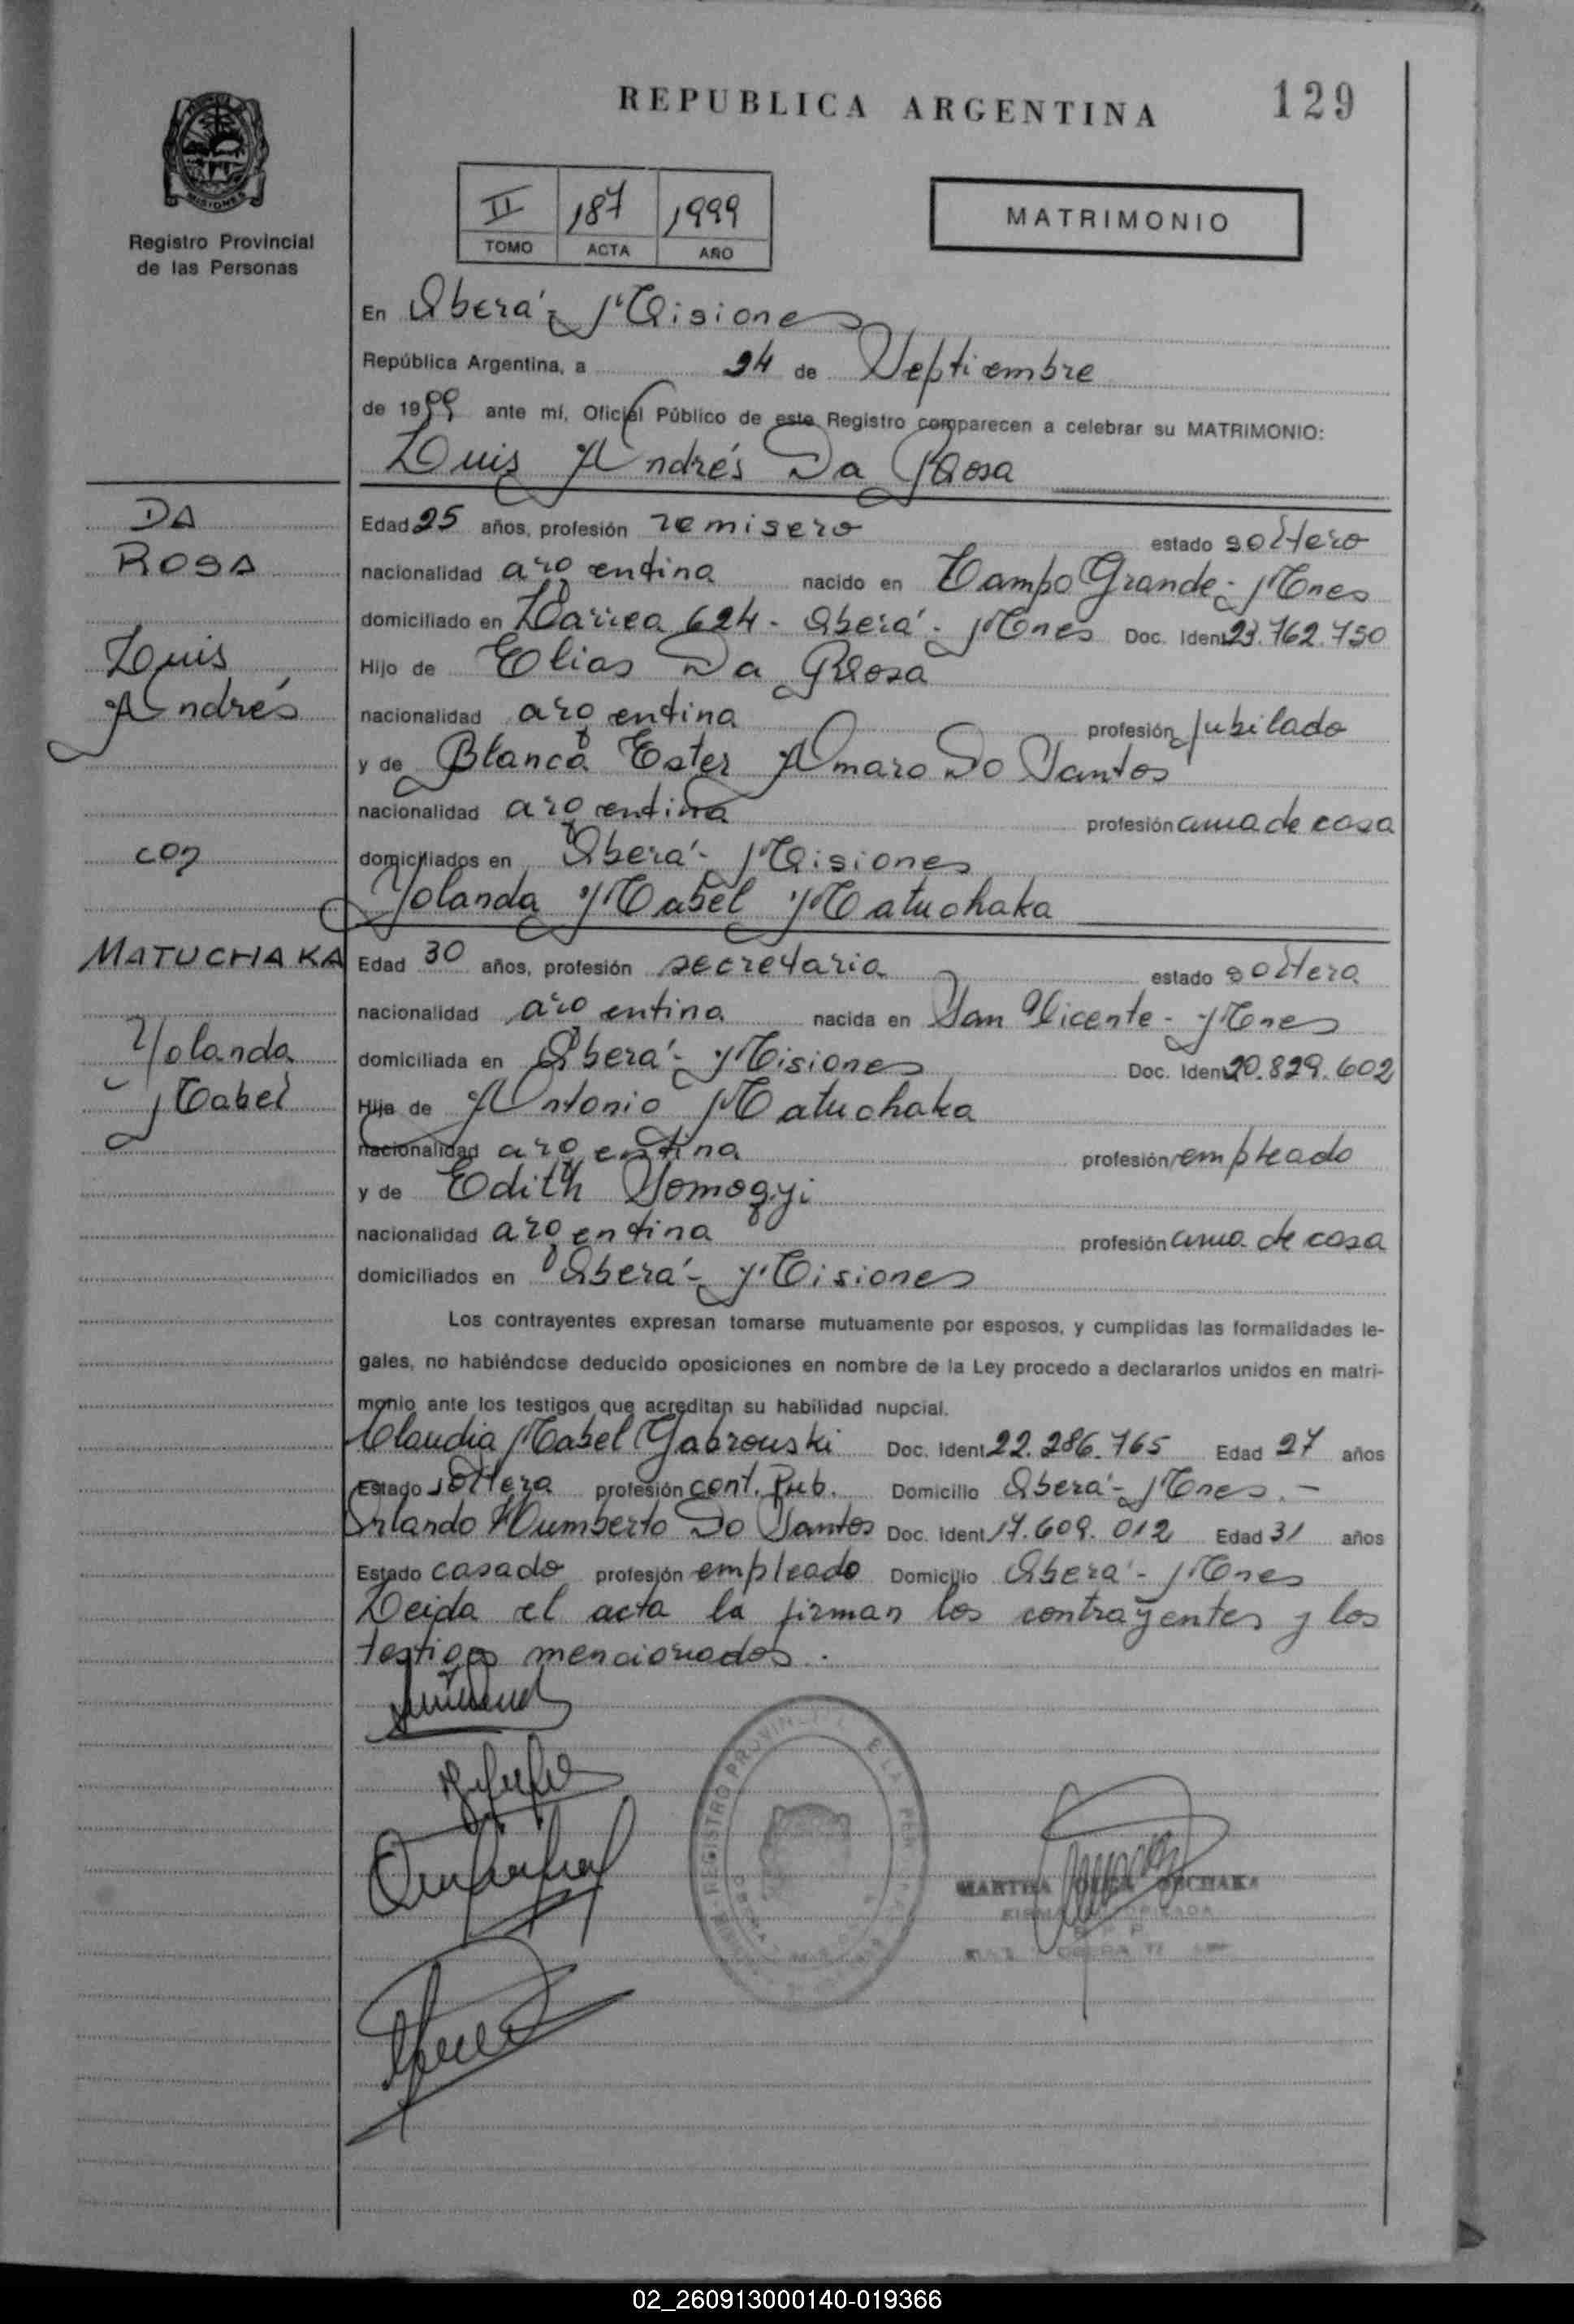 REPUBLICA ARGENTINA
129
MISIONES
Registro Provincial
de las Personas
II 187 1999
TOMO ACTA AÑO
MATRIMONIO
En Oberá - Misiones
República Argentina, a 24 de Septiembre
de 1999 ante mí, Oficial Público de este Registro comparecen a celebrar su MATRIMONIO:
Luis Andrés Da Rosa
DA
ROSA
Luis
Andrés
con
Edad 25 años, profesión remisero estado soltero
nacionalidad argentina nacido en Campo Grande - Mnes
domiciliado en Larrea 624 - Oberá - Mnes Doc. Ident. 23.762.750
Hijo de Elias Da Rosa
nacionalidad argentina profesión jubilado
y de Blanca Ester Amaro Do Santos
nacionalidad argentina profesión ama de casa
domiciliados en Oberá - Misiones
Yolanda Mabel Matuchaka
MATUCHAKA
Yolanda
Mabel
Edad 30 años, profesión secretaria estado soltera
nacionalidad argentina nacida en San Vicente - Mnes
domiciliada en Oberá - Misiones Doc. Ident. 20.829.602
Hija de Antonio Matuchaka
nacionalidad argentina profesión empleado
y de Edith Somogyi
nacionalidad argentina profesión ama de casa
domiciliados en Oberá - Misiones
Los contrayentes expresan tomarse mutuamente por esposos, y cumplidas las formalidades le-
gales, no habiéndose deducido oposiciones en nombre de la Ley procedo a declararlos unidos en matri-
monio ante los testigos que acreditan su habilidad nupcial.
Claudia Mabel Gabrouski Doc. Ident. 22.286.765 Edad 27 años
Estado soltera profesión cont. Pub. Domicilio Oberá - Mnes. -
Orlando Humberto Do Santos Doc. Ident. 17.609.012 Edad 31 años
Estado casado profesión empleado Domicilio Oberá - Mnes
Leida el acta la firman los contrayentes y los
testigos mencionados.
REGISTRO PROVINCIAL
MARTHA
02_260913000140-019366